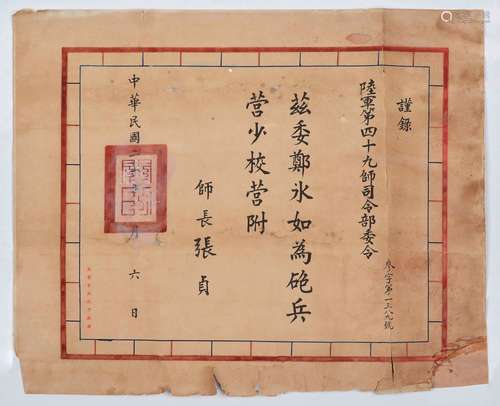 謹錄
陸軍第四十九師司令部委令
參字第一三八九號
茲委鄭氷如為砲兵
營少校營附
師長張貞
中華民國二十年 月六日